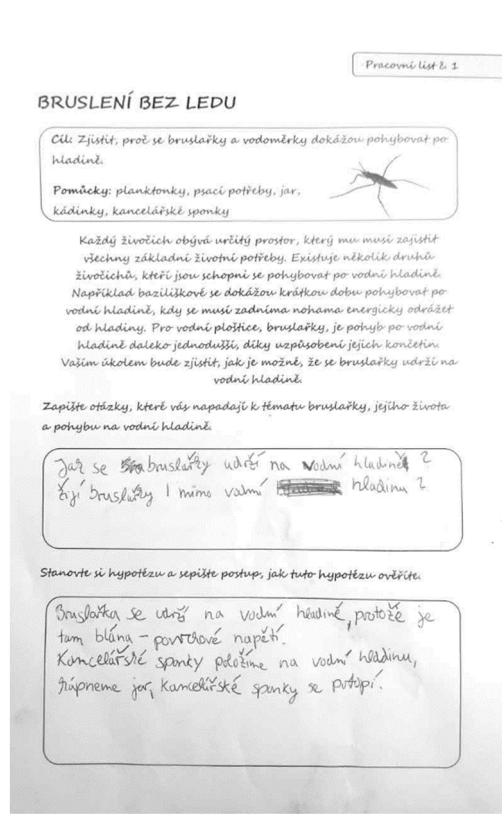 Pracovní list č. 1
BRUSLENÍ BEZ LEDU
Cíl: Zjistit, proč se bruslařky a vodoměrky dokážou pohybovat po
hladině.
Pomůcky: planktonky, psací potřeby, jar,
kádinky, kancelářské sponky
Každý živočich obývá určitý prostor, který mu musí zajistit
všechny základní životní potřeby. Existuje několik druhů
živočichů, kteří jsou schopni se pohybovat po vodní hladině.
Například baziliškové se dokážou krátkou dobu pohybovat po
vodní hladině, kdy se musí zadníma nohama energicky odrážet
od hladiny. Pro vodní ploštice, bruslařky, je pohyb po vodní
hladině daleko jednodušší, díky uzpůsobení jejich končetin.
Vaším úkolem bude zjistit, jak je možné, že se bruslařky udrží na
vodní hladině.
Zapište otázky, které vás napadají k tématu bruslařky, jejího života
a pohybu na vodní hladině.
Jak se bruslařky udrží na vodní hladině?
Žijí bruslařky i mimo vodní hladinu?
Stanovte si hypotézu a sepište postup, jak tuto hypotézu ověříte.
Bruslařka se udrží na vodní hladině, protože je
tam blána - povrchové napětí.
Kancelářské sponky položíme na vodní hladinu,
kápneme jar, kancelářské sponky se potopí.